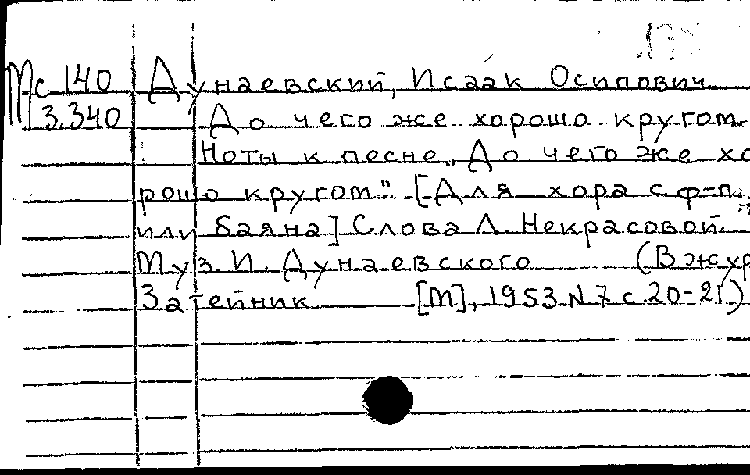 Мс 140 Дунаевский, Исаак Осипович
3.340 До чего же хорошо кругом.
Ноты к песне „До чего же хо
рошо кругом" [Для хора с ф-п.
или баяна] Слова Л. Некрасовой.
Муз. И. Дунаевского (В жур
Затейник [М], 1953 N 7 с 20-21)